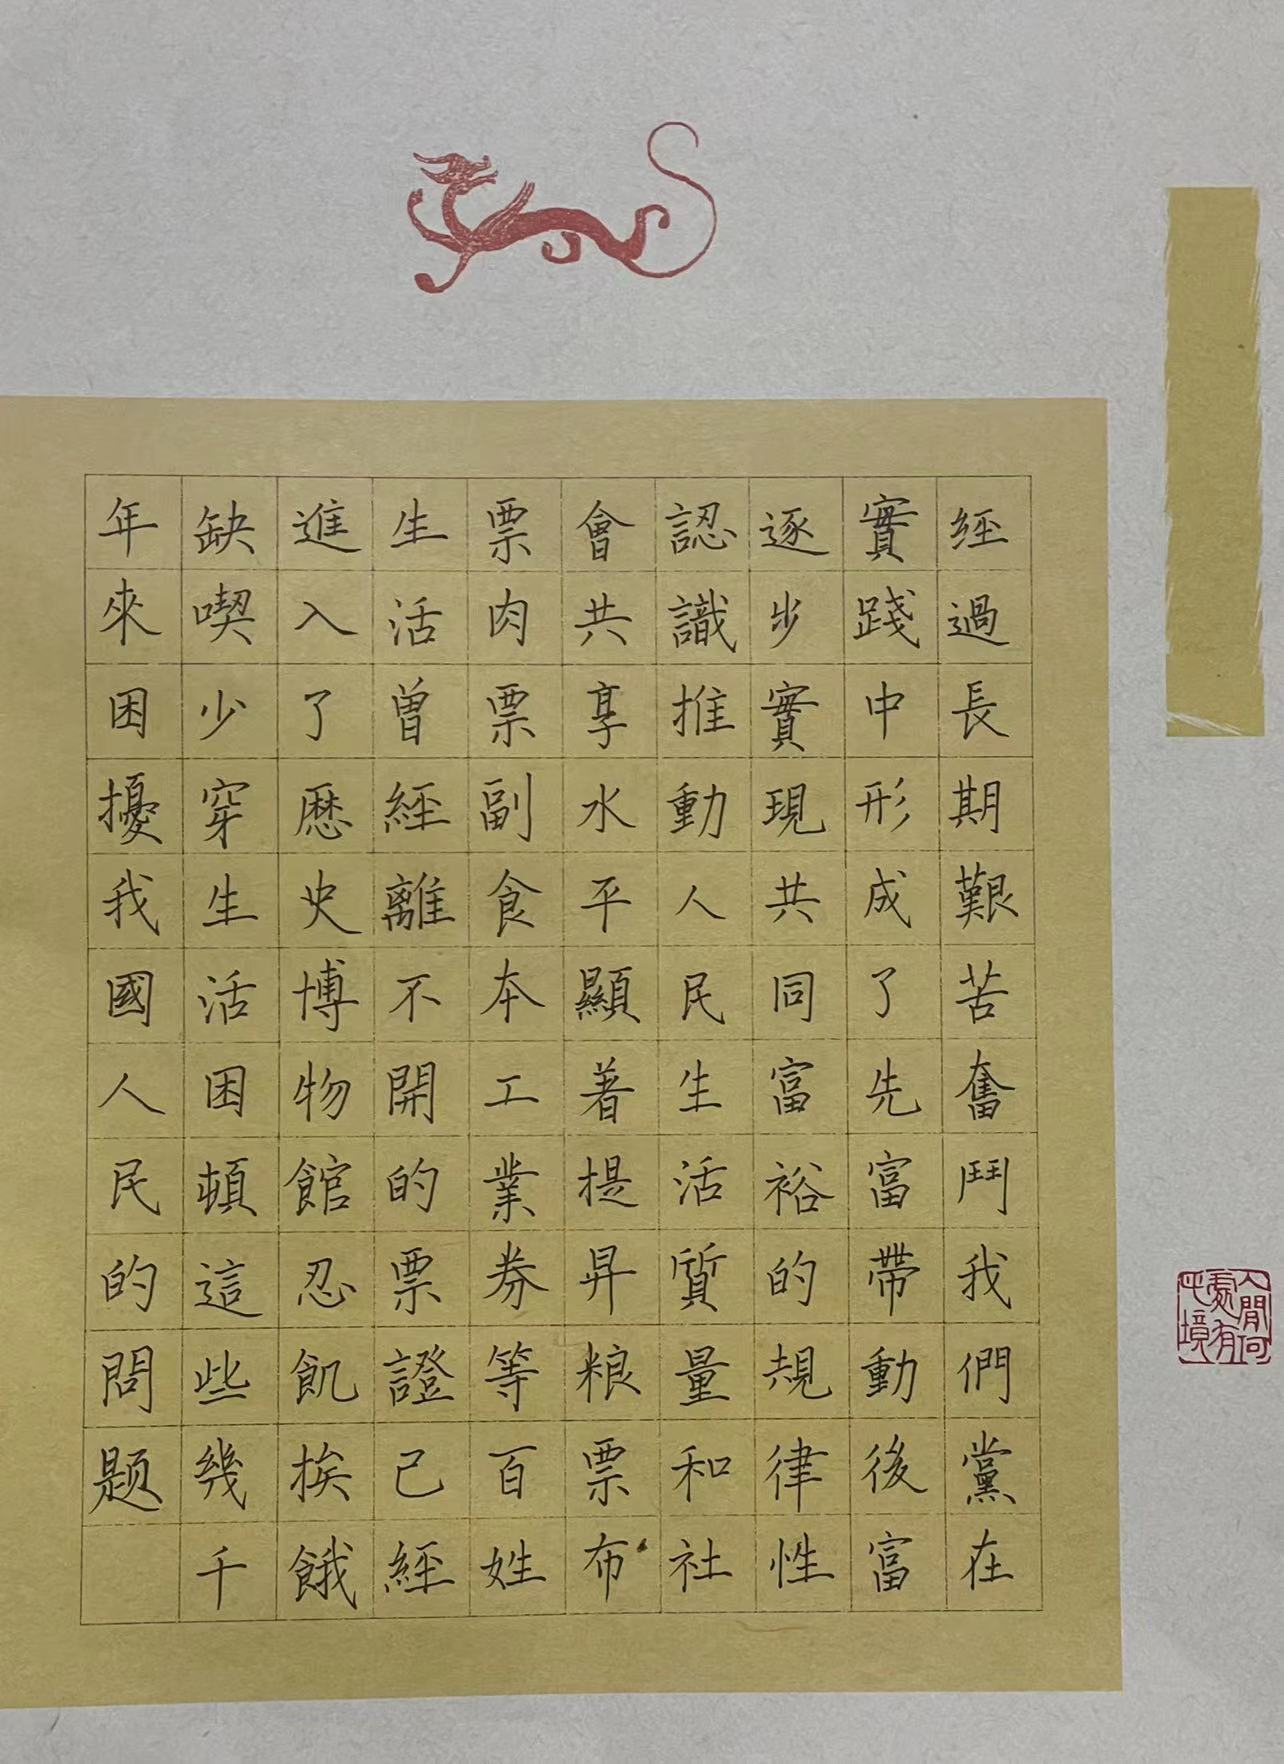 經過長期艱苦奮鬥我們黨在
實踐中形成了先富帶動後富
逐步實現共同富裕的規律性
認識推動人民生活質量和社
會共享水平顯著提昇粮票布
票肉票副食本工業券等百姓
生活曾經離不開的票證已經
進入了歷史博物館忍飢挨餓
缺喫少穿生活困頓這些幾千
年來困擾我國人民的問題
人間何處有此境